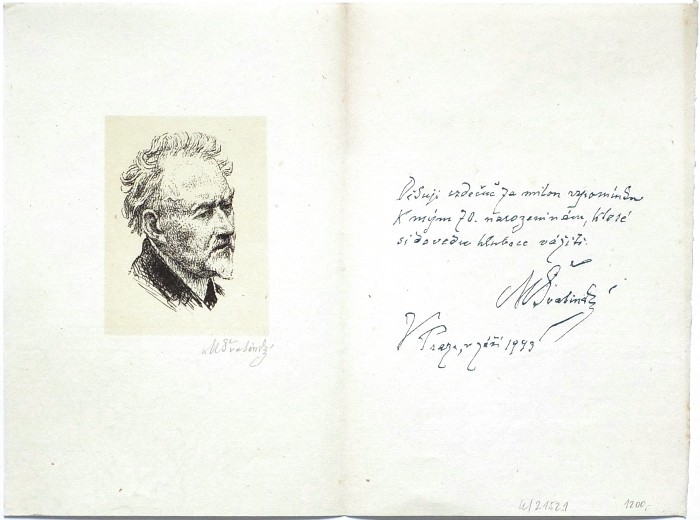 MŠvabinský
Děkuji vděčně za milou vzpomínku
K mým 70. narozeninám, které
si dovedu hluboce vážiti.
MŠvabinský
V Praze, v září 1943
1200,-